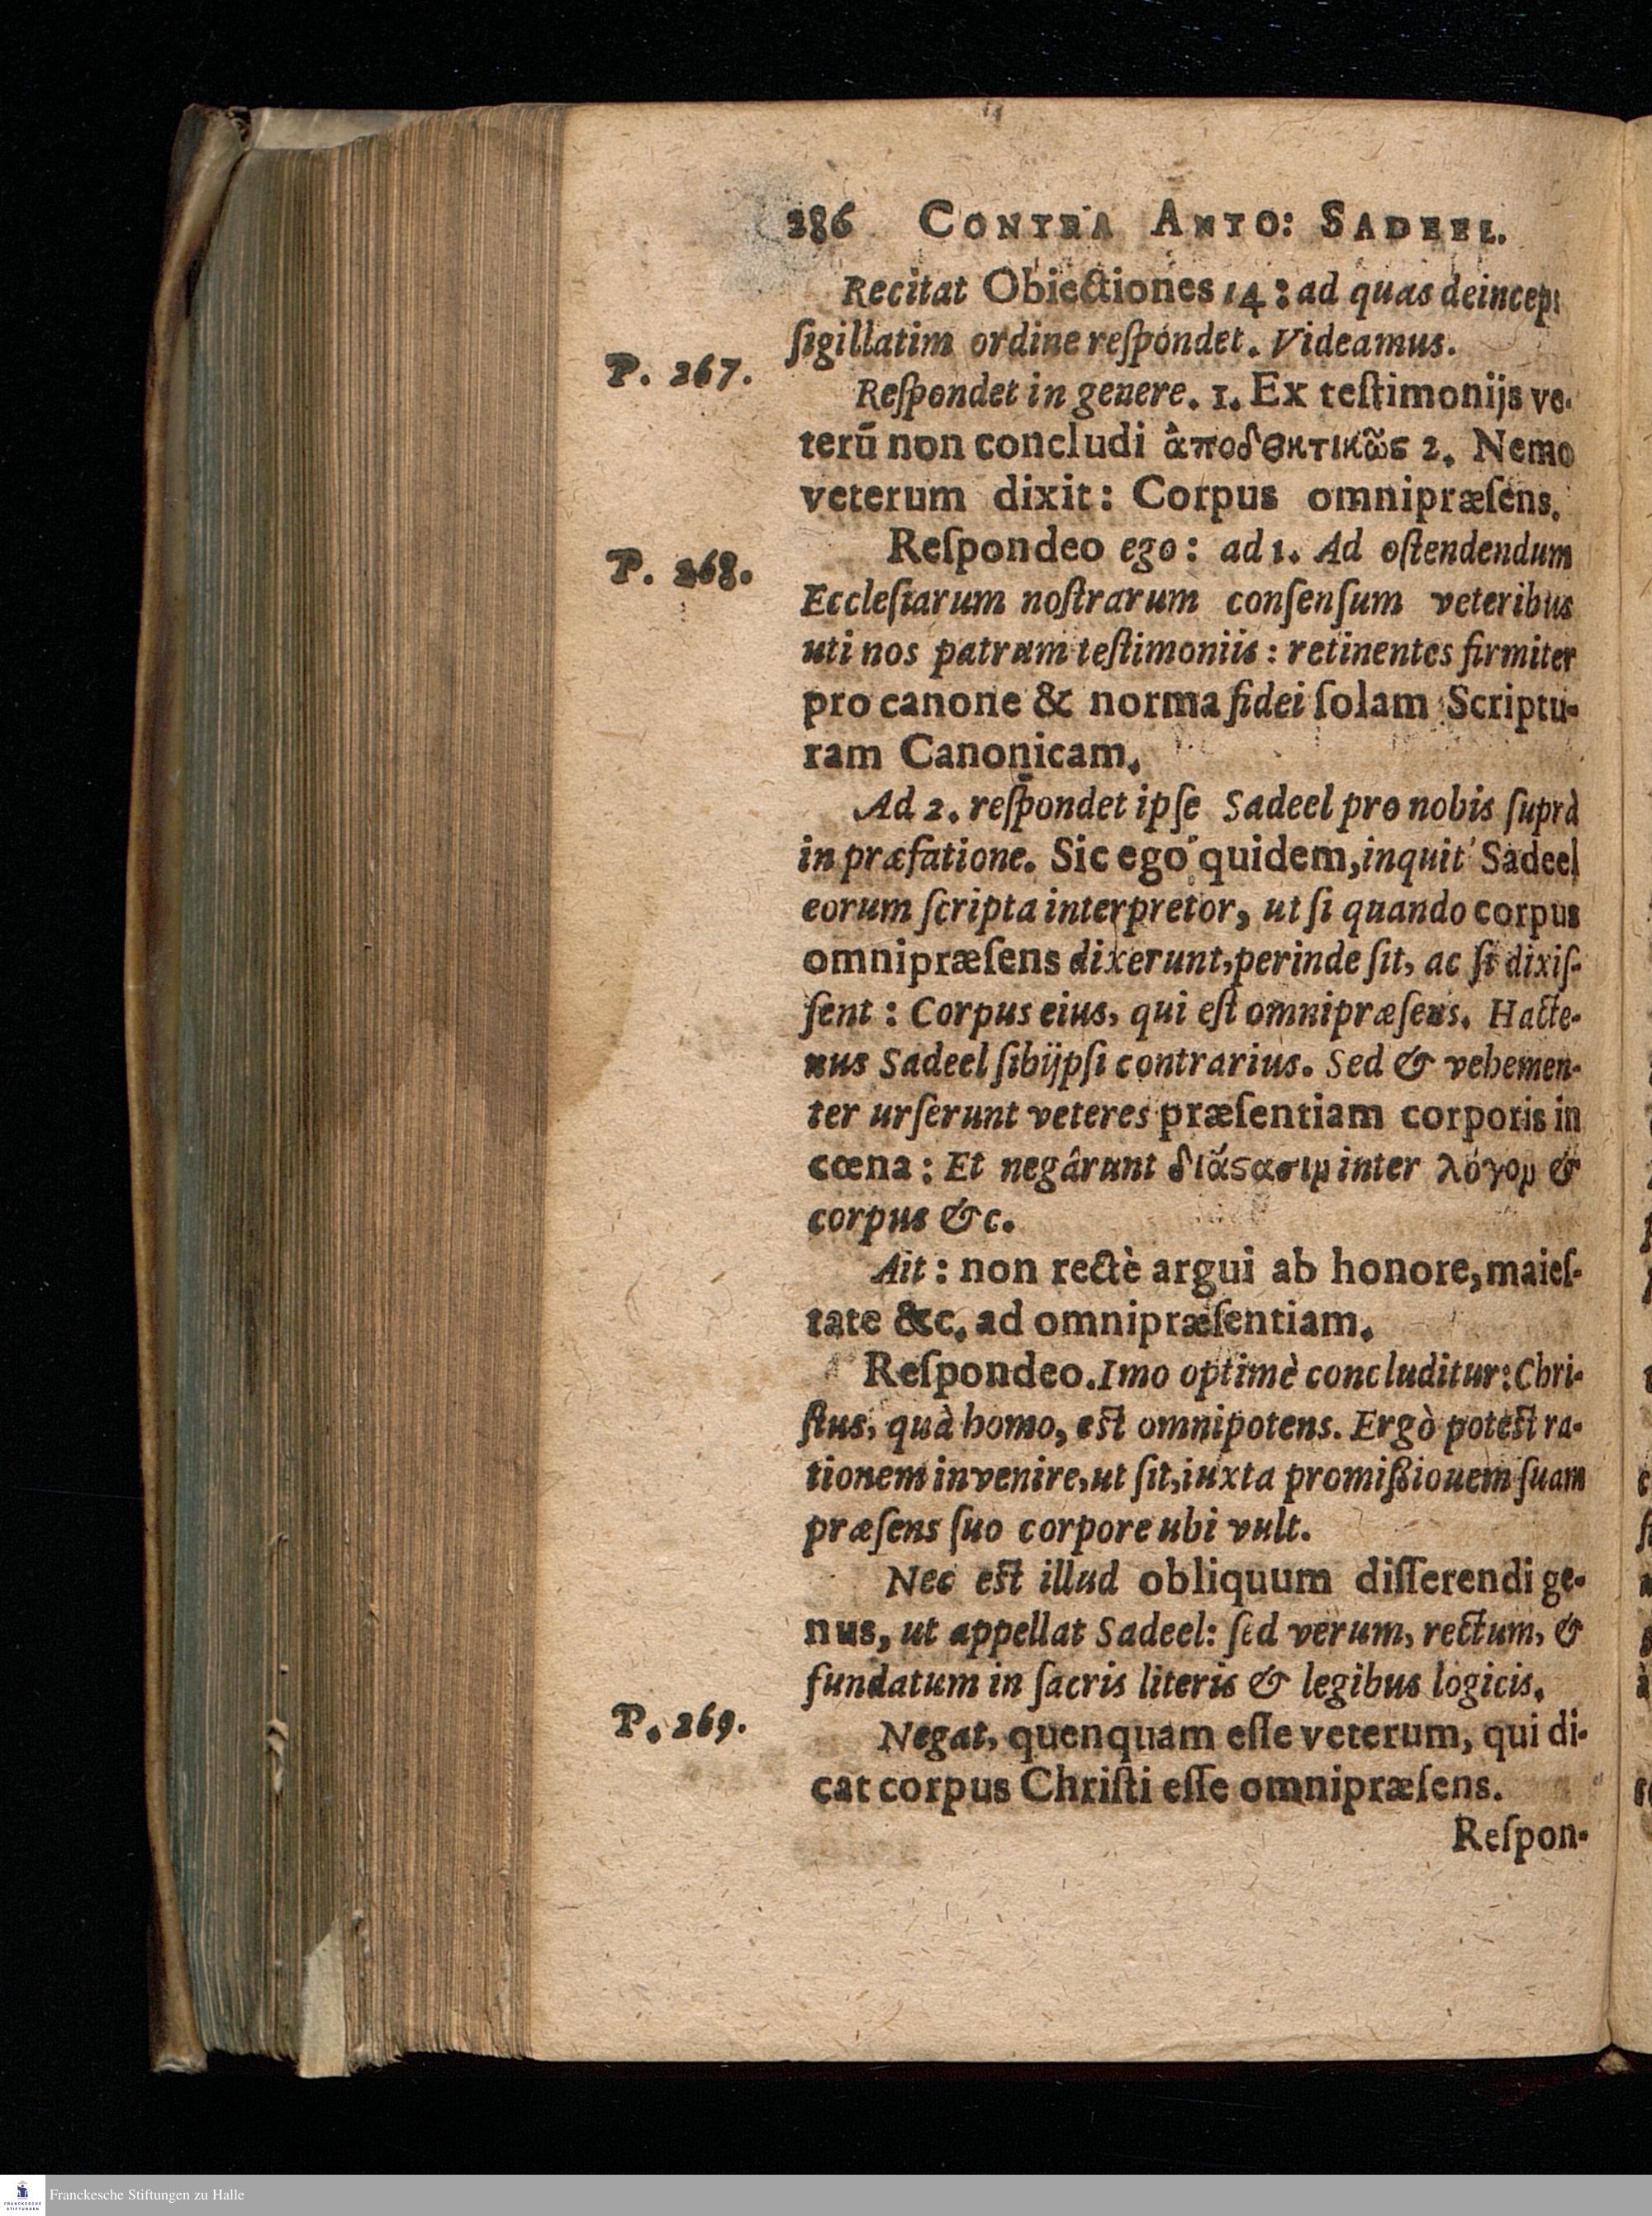 286 CONTRA ANTO: SADEEL.
Recitat Obiectiones 14: ad quas deinceps
ſigillatim ordine reſpondet. Videamus.
P. 267.
Reſpondet in genere. 1. Ex teſtimonijs ve-
terū non concludi ἀποδεικτικῶς 2. Nemo
veterum dixit: Corpus omnipræſens.
P. 268.
Reſpondeo ego: ad 1. Ad oſtendendum
Eccleſiarum noſtrarum conſenſum veteribus
uti nos patrum teſtimoniis: retinentes firmiter
pro canone & norma fidei ſolam Scriptu-
ram Canonicam.
Ad 2. reſpondet ipſe Sadeel pro nobis ſuprà
in præfatione. Sic ego quidem, inquit Sadeel
eorum ſcripta interpretor, ut ſi quando corpus
omnipræſens dixerunt, perinde ſit, ac ſi dixiſ-
ſent: Corpus eius, qui eſt omnipræſens. Hacte-
nus Sadeel ſibijpſi contrarius. Sed & vehemen-
ter urſerunt veteres præſentiam corporis in
cœna: Et negârunt διάϛασιμ inter λόγομ &
corpus &c.
Ait: non rectè argui ab honore, maieſ-
tate &c. ad omnipræſentiam.
Reſpondeo. Imo optimè concluditur: Chri-
ſtus, quà homo, eſt omnipotens. Ergò poteſt ra-
tionem invenire, ut ſit, iuxta promißiouem ſuam
præſens ſuo corpore ubi vult.
Nec eſt illud obliquum diſſerendi ge-
nus, ut appellat Sadeel: ſed verum, rectum, &
fundatum in ſacris literis & legibus logicis.
P. 269.
Negat, quenquam eſſe veterum, qui di-
cat corpus Chriſti eſſe omnipræſens.
Reſpon-
FRANCKESCHE
STIFTUNGEN
Franckesche Stiftungen zu Halle